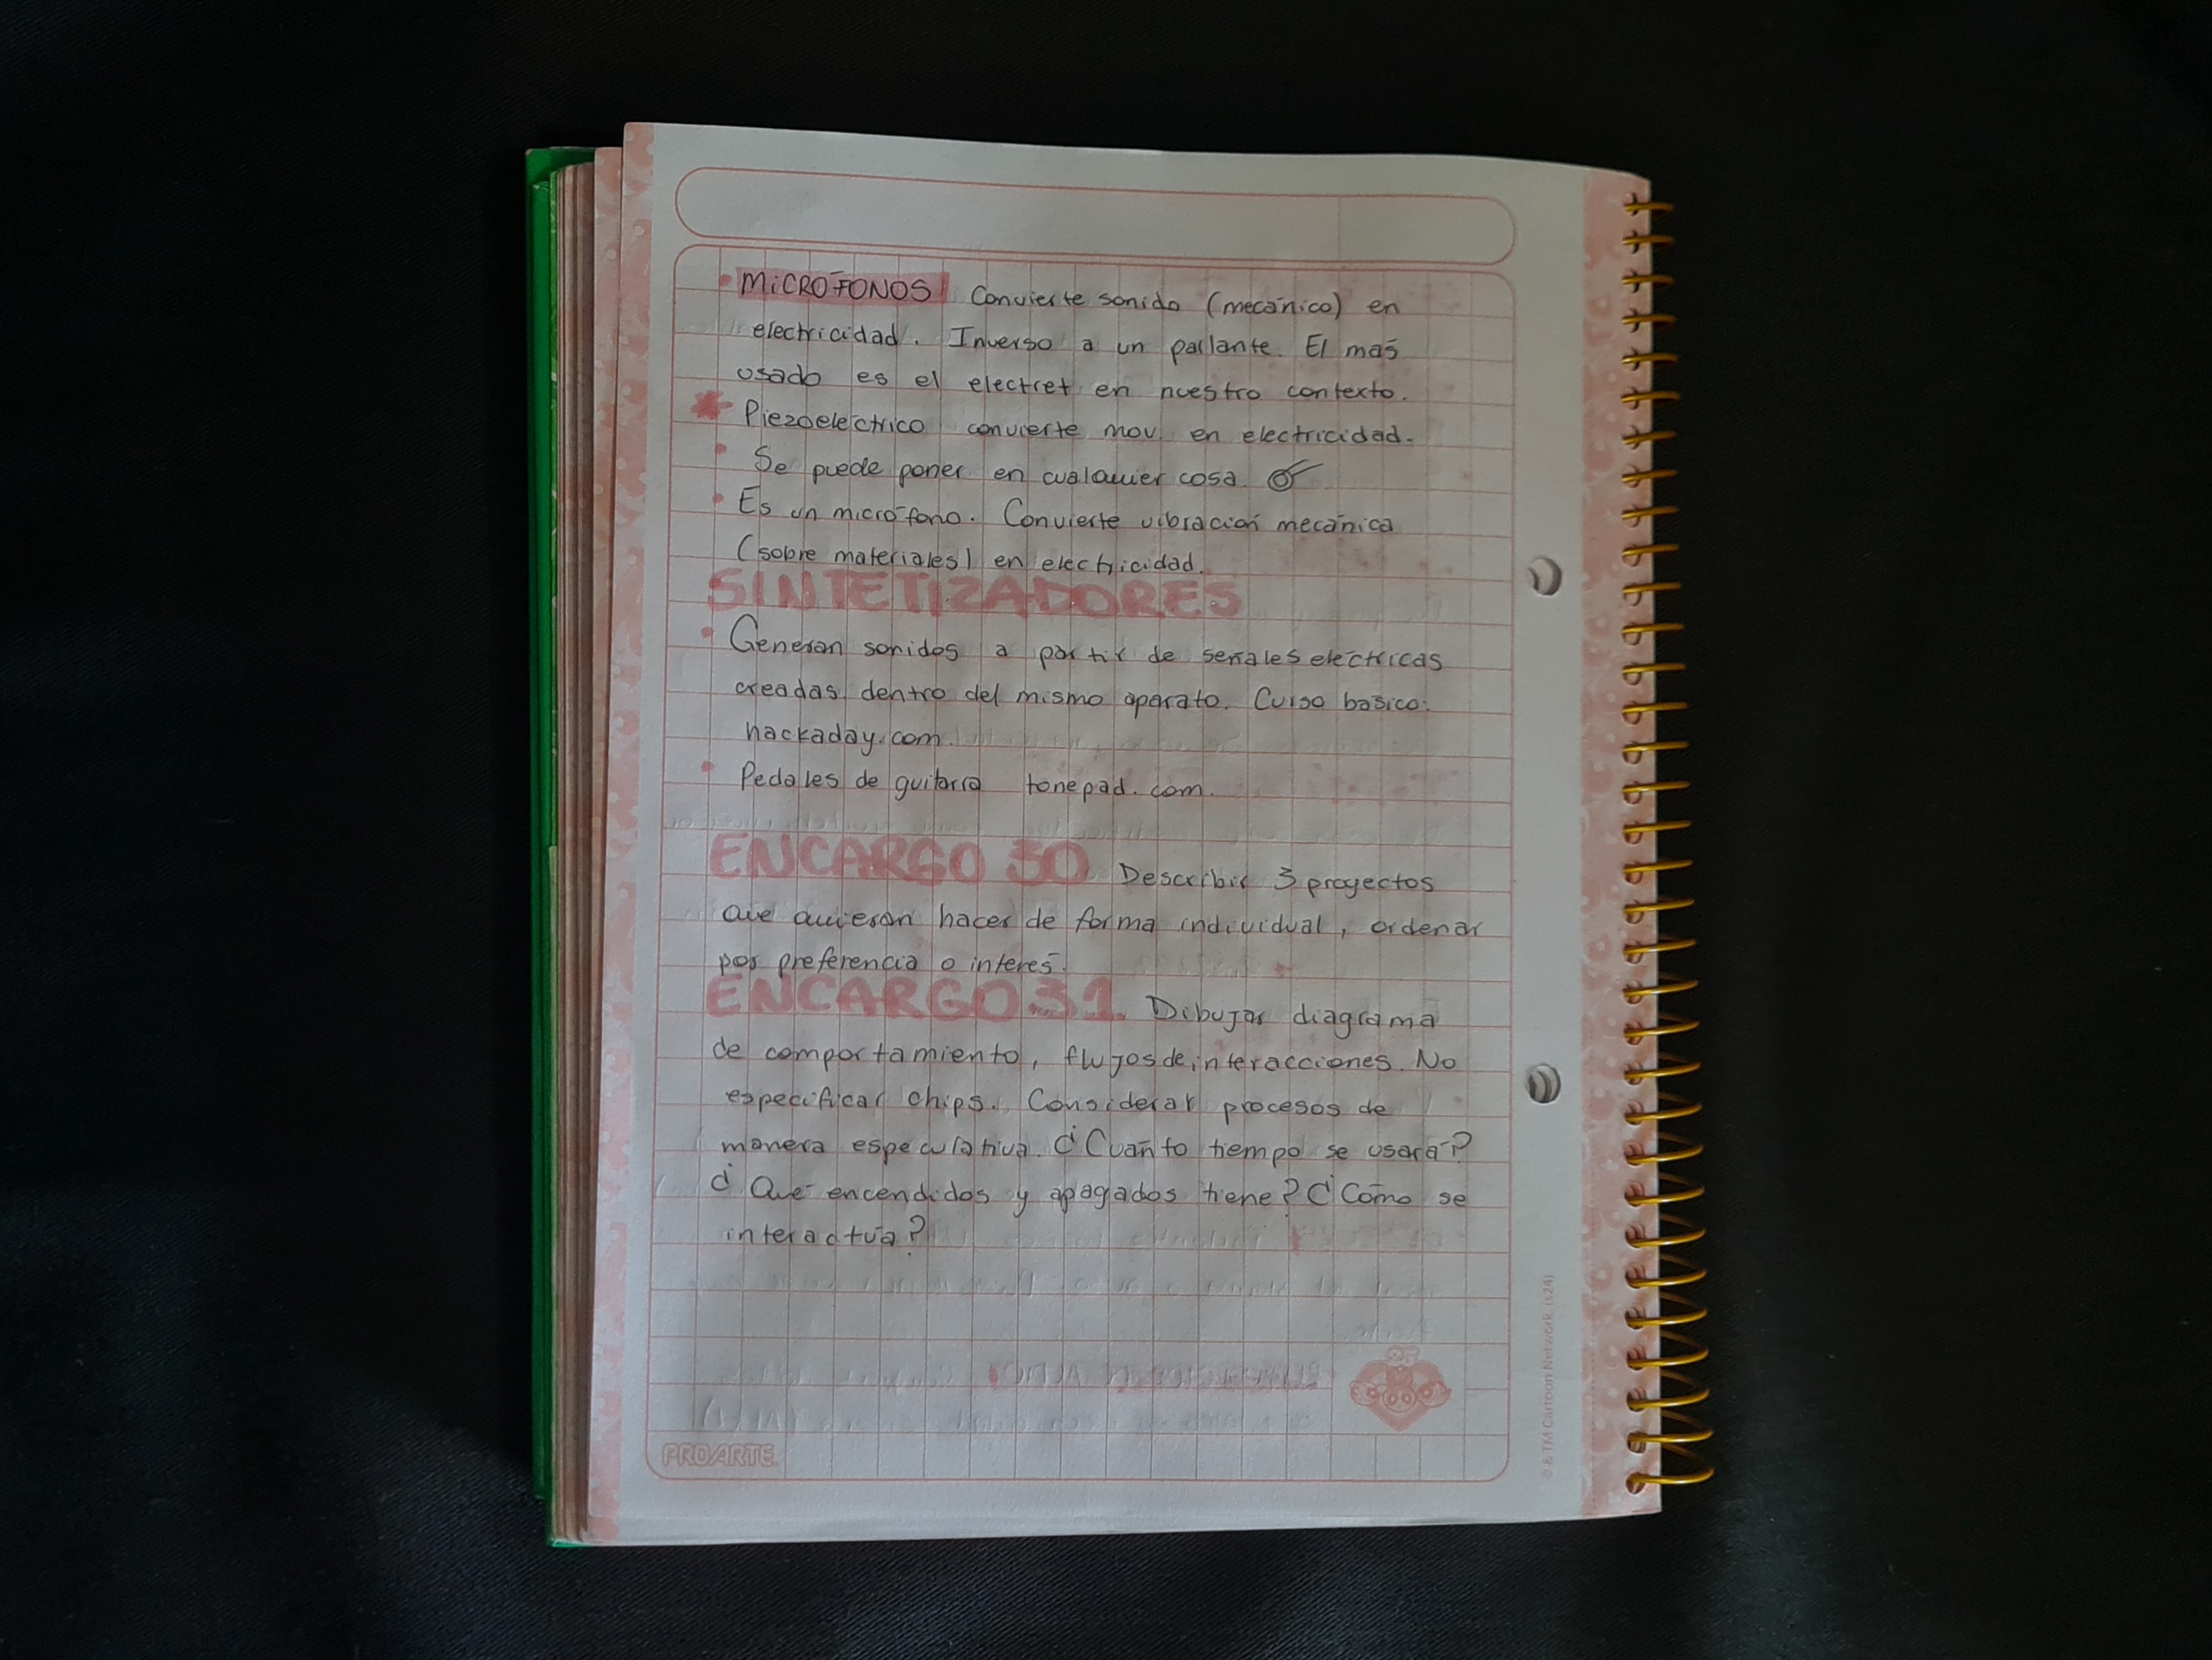 • MiCRÓFONOS Convierte sonido (mecánico) en
electricidad. Inverso a un parlante. El más
usado es el electret en nuestro contexto.
* Piezoeléctrico convierte mov. en electricidad.
• Se puede poner en cualquier cosa
• Es un micrófono. Convierte vibración mecánica
(sobre materiales) en electricidad.
SINTETIZADORES
• Generan sonidos a partir de señales eléctricas
creadas dentro del mismo aparato. Curso básico:
hackaday.com.
• Pedales de guitarra tonepad.com.
ENCARGO 30 Describir 3 proyectos
que quieran hacer de forma individual, ordenar
por preferencia o interés.
ENCARGO 31. Dibujar diagrama
de comportamiento, flujos de interacciones. No
especificar chips. Considerar procesos de
manera especulativa. ¿Cuánto tiempo se usará?
¿Qué encendidos y apagados tiene? ¿Cómo se
interactúa?
PROARTE
© & TM Cartoon Network. (s24)